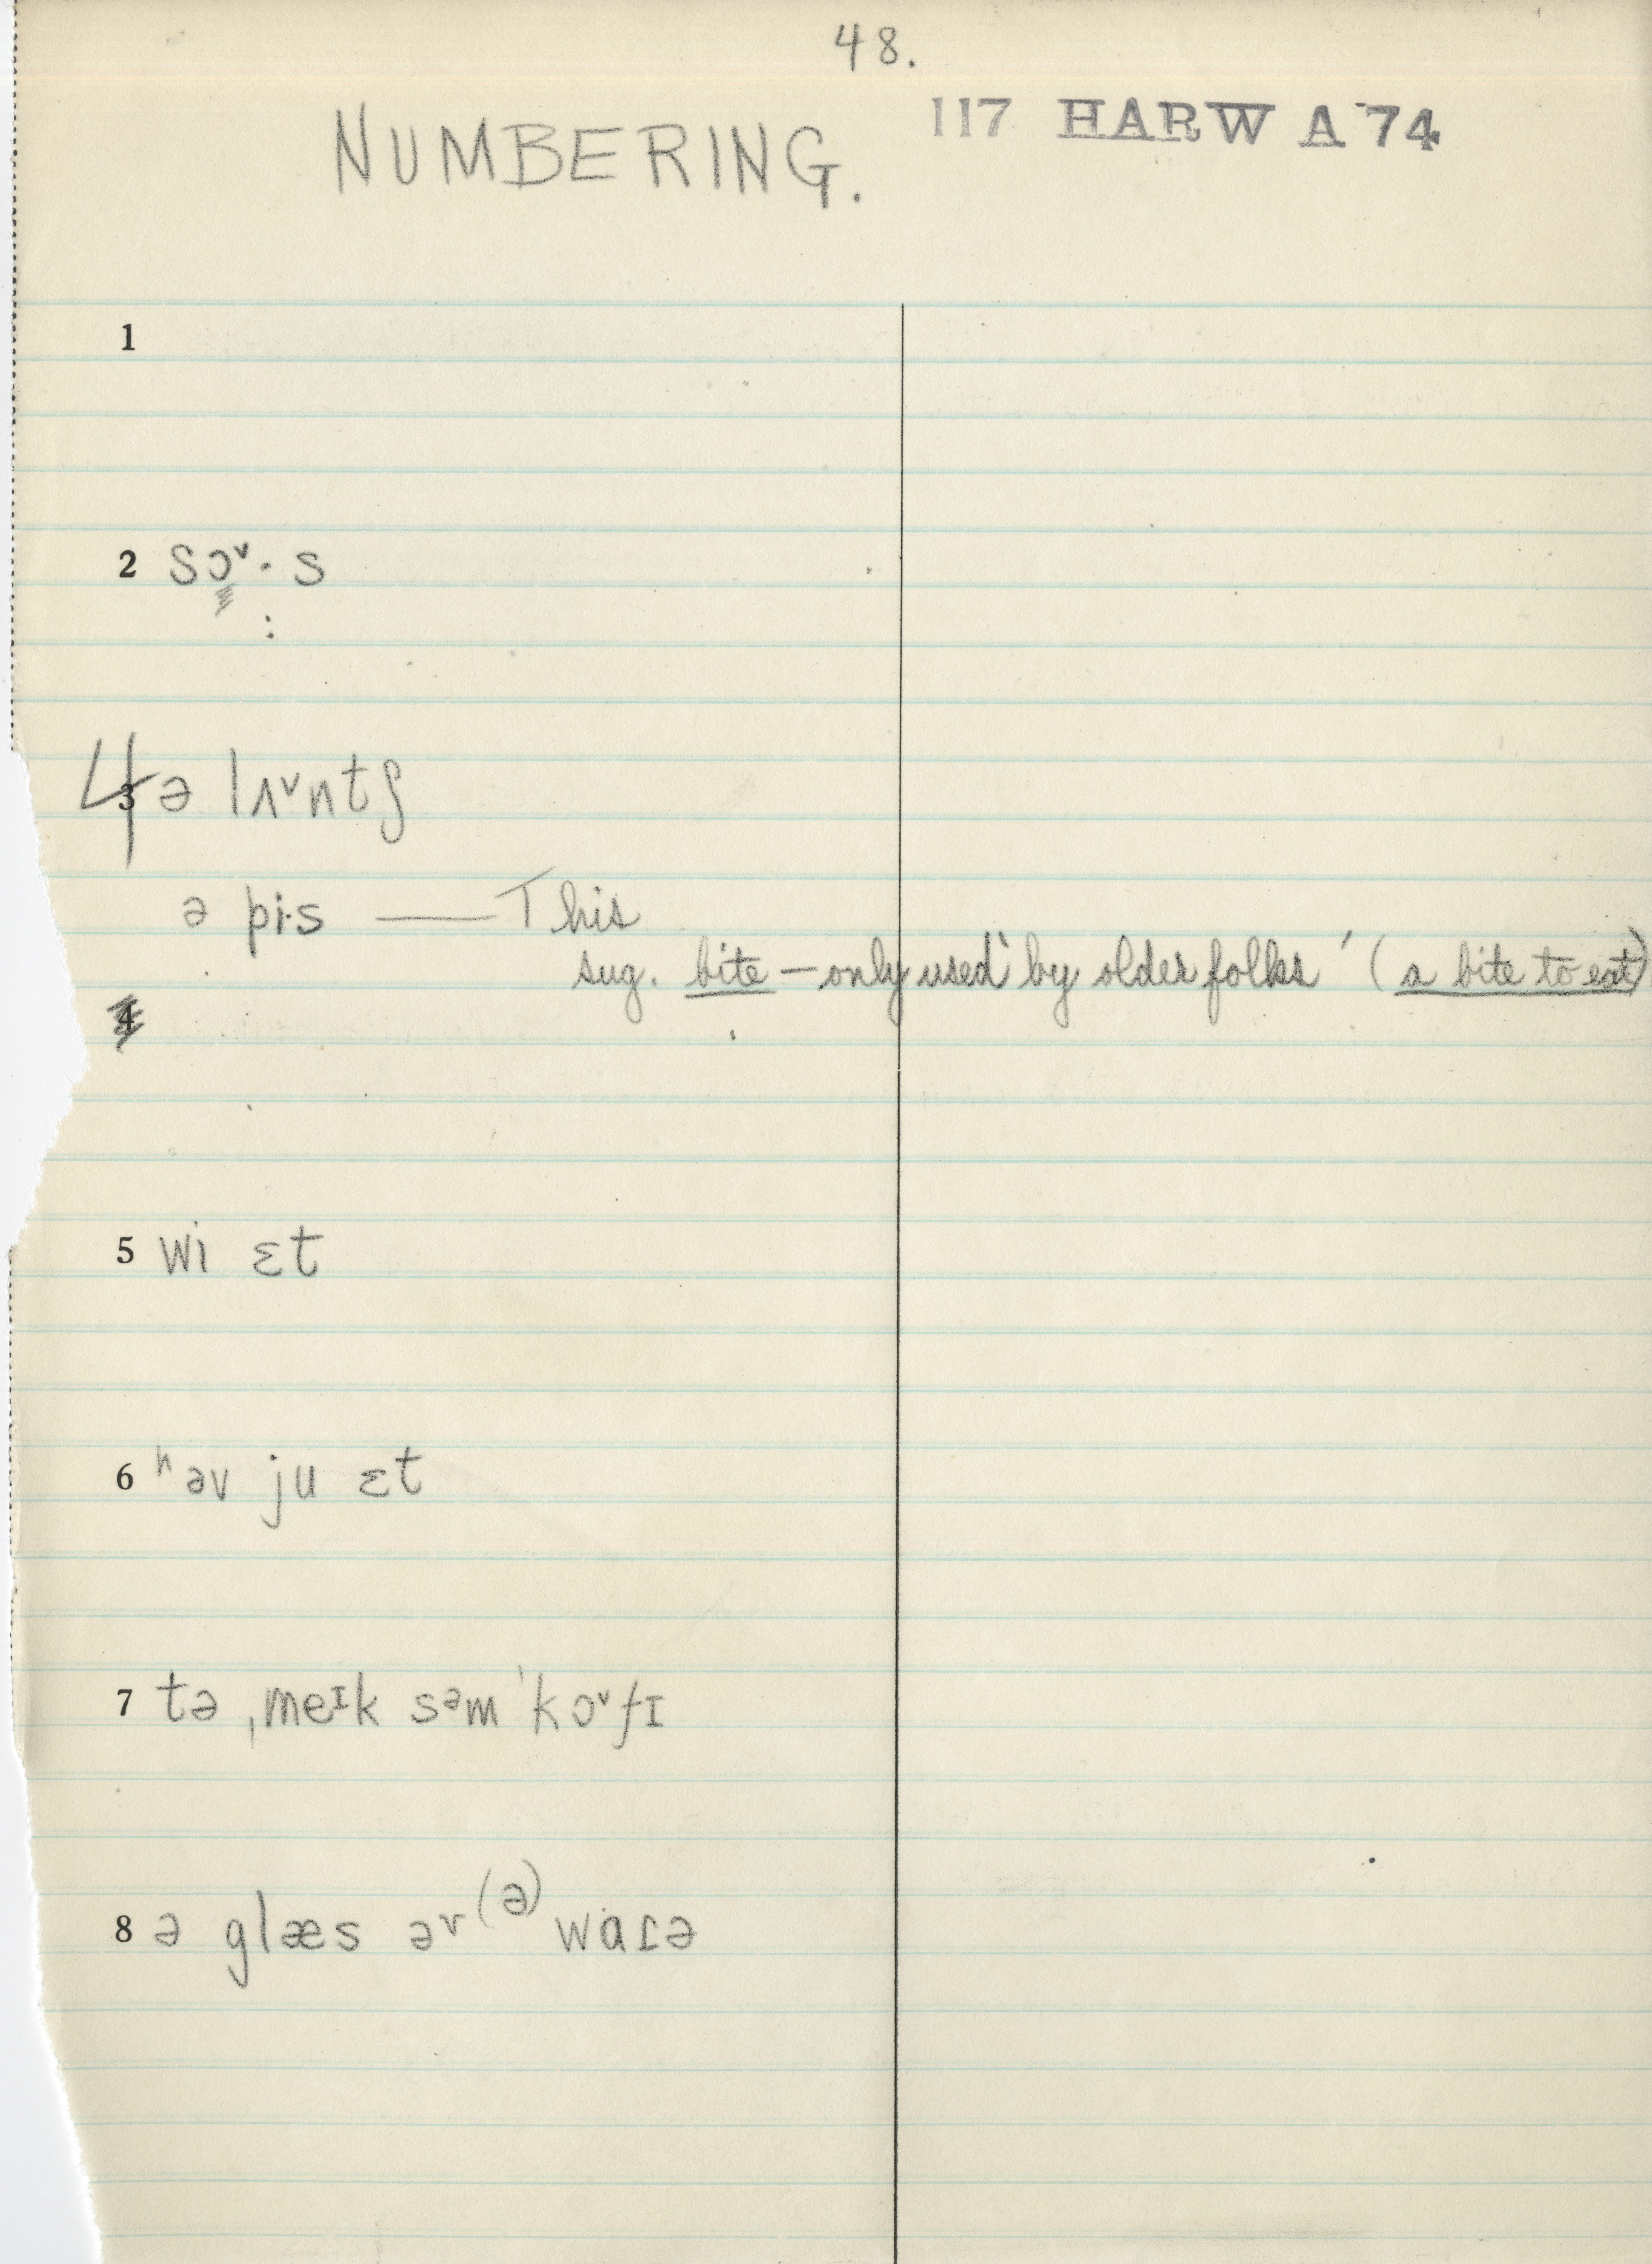 48.
NUMBERING. 117 HARW A 74
1
2 sɔ˅· s
:
4 3 ə lʌ˅ntʃ
ə pi·s — This
sug. bite — only used by older folks ' (a bite to eat)
4
5 wi ɛt
6 ʰəv ju ɛt
7 tə ˌmeᶦk sᵊm ˈkɔ˅fɪ
8 ə glæs əᵛ (ə) wɑɾə